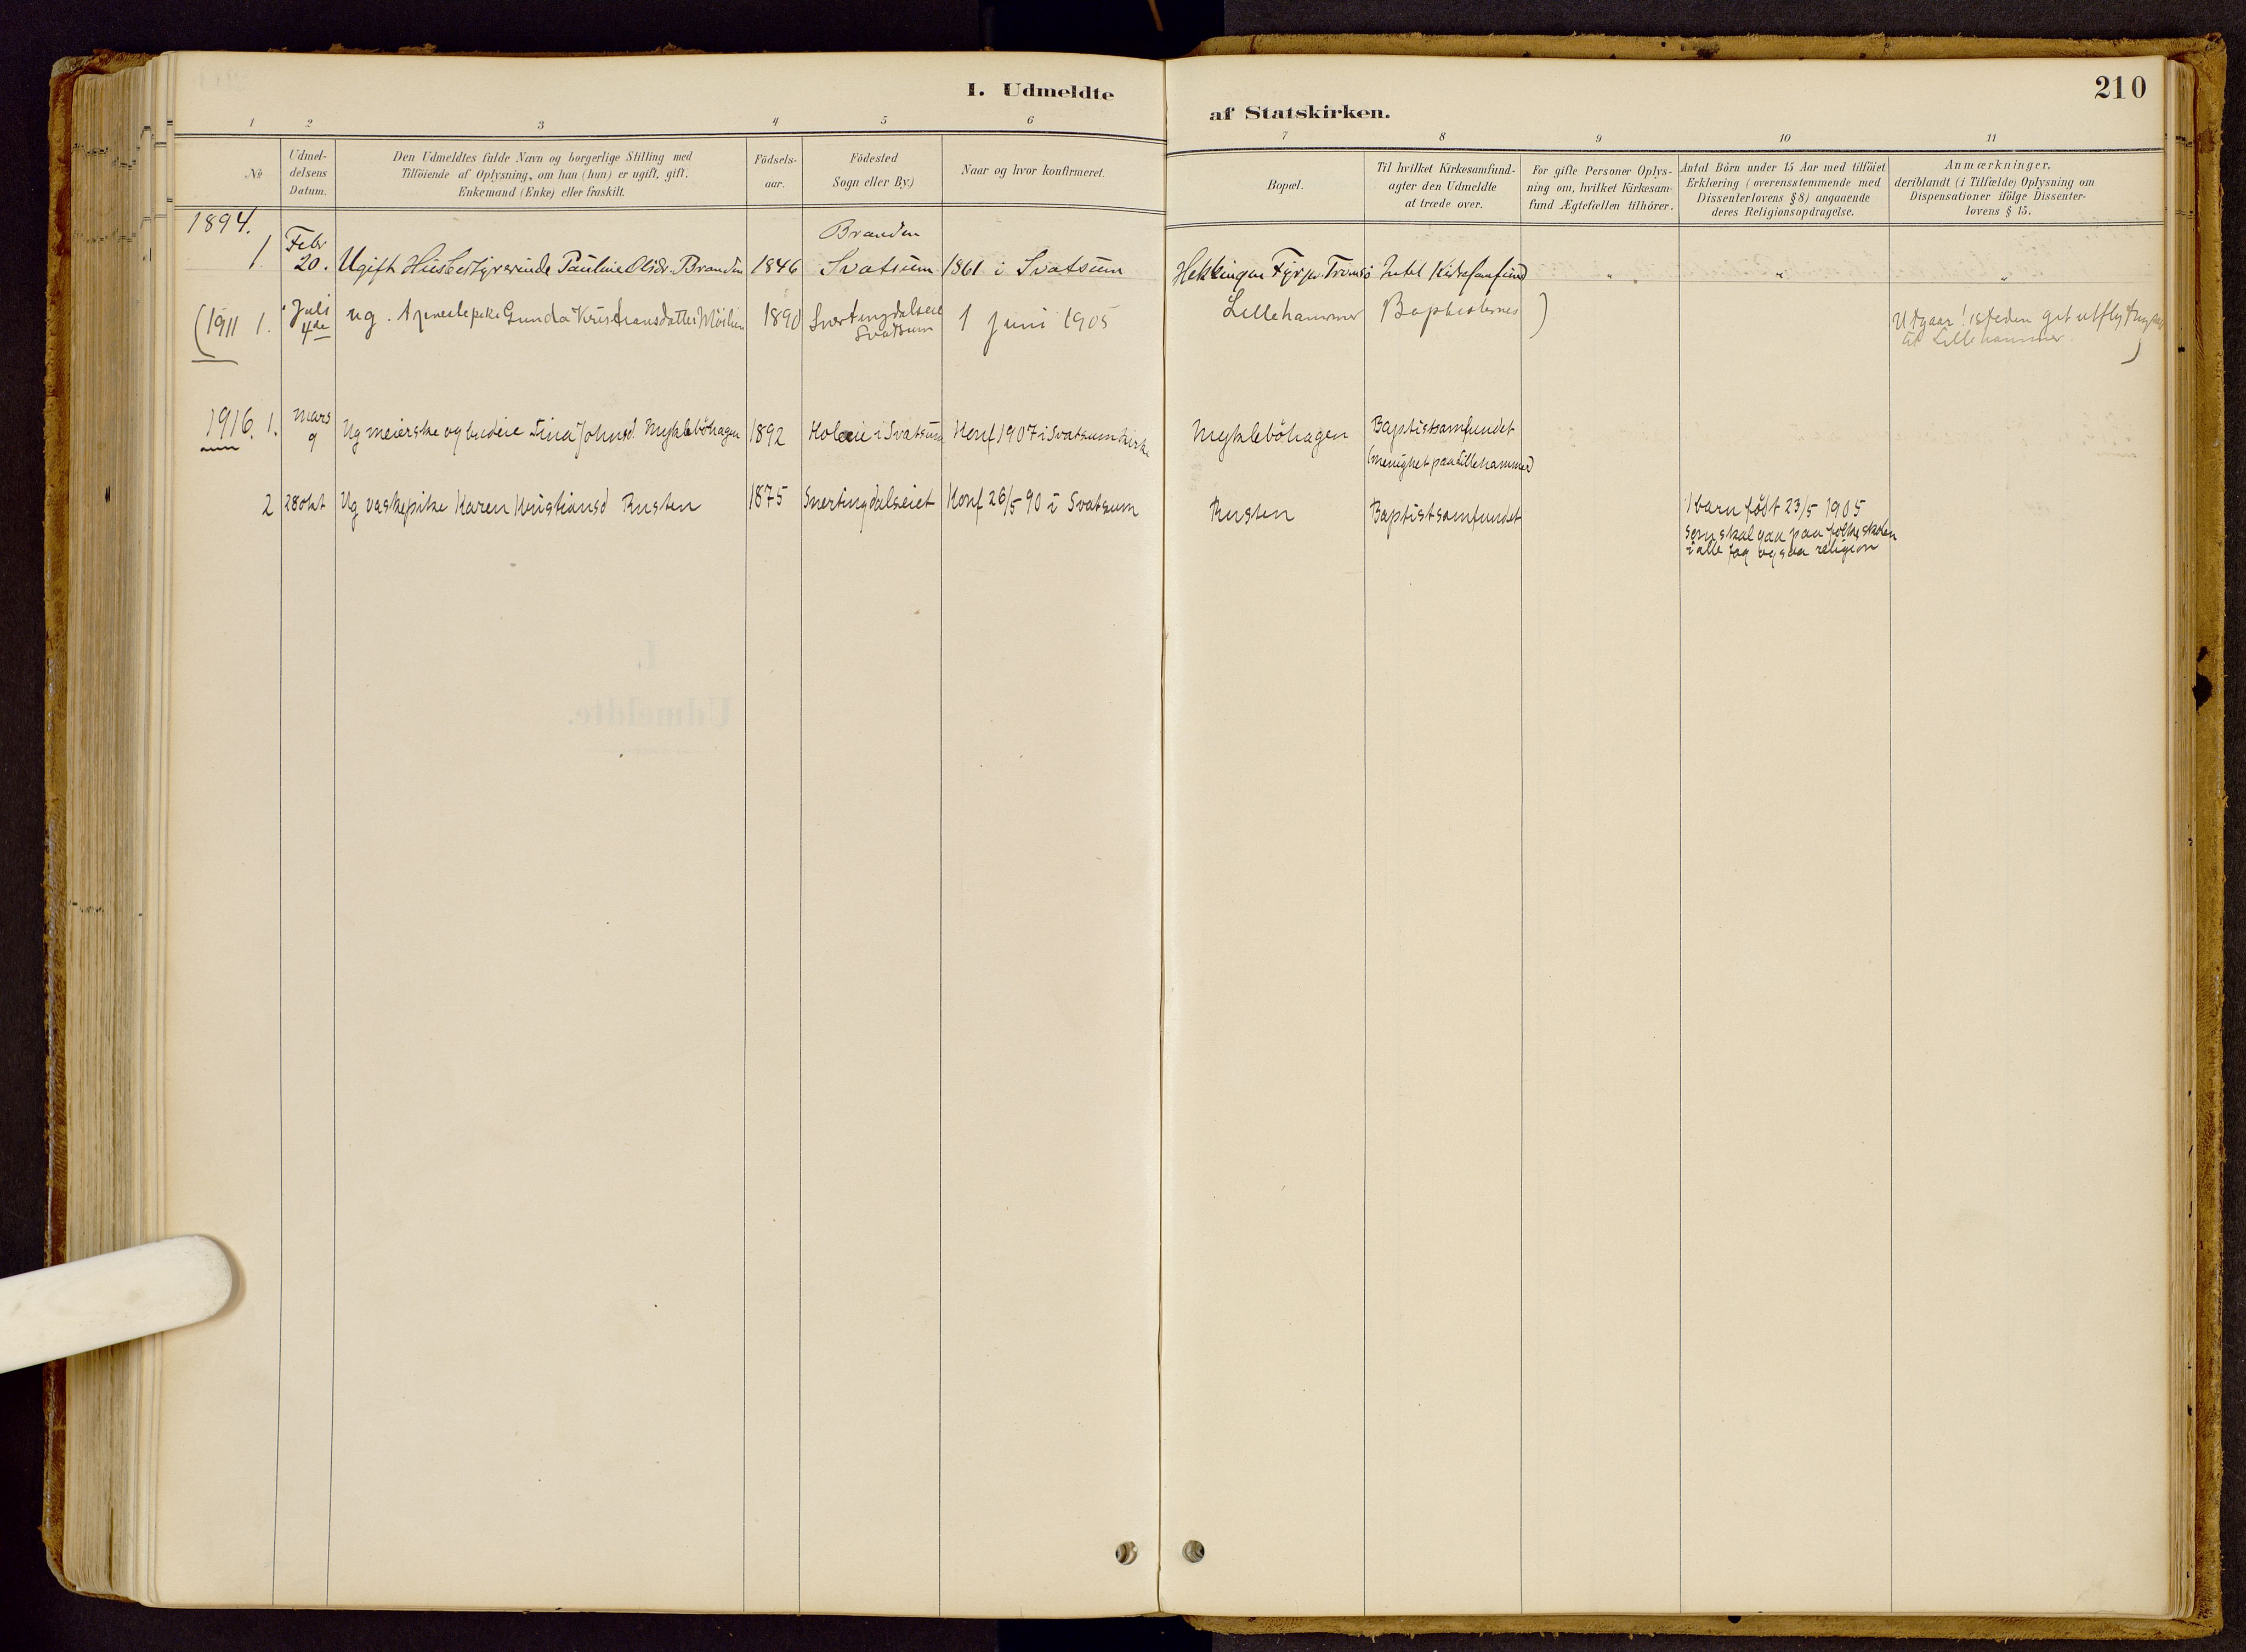 I. Udmeldte
af Statskirken.
210
1 2 3 4 5 6 7 8 9 10 11
No
Udmel-
delsens
Datum.
Den Udmeldtes fulde Navn og borgerlige Stilling med
Tilföiende af Oplysning, om han (hun) er ugift, gift,
Enkemand (Enke) eller fraskilt.
Födsels-
aar.
Födested
Sogn eller By.)
Naar og hvor konfirmeret.
Bopæl.
Til hvilket Kirkesamfund-
agter den Udmeldte
at træde over.
For gifte Personer Oplys-
ning om, hvilket Kirkesam-
fund Ægtefællen tilhörer.
Antal Börn under 15 Aar med tilföiet
Erklæring (overensstemmende med
Dissenterlovens § 8) angaaende
deres Religionsopdragelse.
Anmærkninger,
deriblandt (i Tilfælde) Oplysning om
Dispensationer ifölge Dissenter-
lovens § 15.
1894.
Febr Branden
1. 20. Ugift Husbestyrerinde Pauline Olsdr. Branden 1846 Svatsum 1861 i Svatsum Hekkingen Fyr pr. Tromsö Intet Kirkesamfund " " "
(1911 1. Juli
4de ug. Kristiansdatter 1890
Svatsum 1 Juni 1905 Lillehammer Baptisternes )
Utgaar! isteden git
til Lillehammer. )
1916. 1. Mars
9 Ug meierske og budeie Tina Johnsd. Mykleböhagen 1892 i Svatsum Konf 1907 i Svatsum kirke Mykleböhagen Baptistsamfundet
(menighet paa Lillehammer)
2 28 okt Ug vaskepike Karen Kristiansd Rusten 1875 Svertingdalseiet Konf 26/5 90 i Svatsum Rusten Baptistsamfundet
1 barn födt 23/5 1905
som skal gaa paa folkeskolen
i alle fag ogsaa religion
I.
Udmeldte.